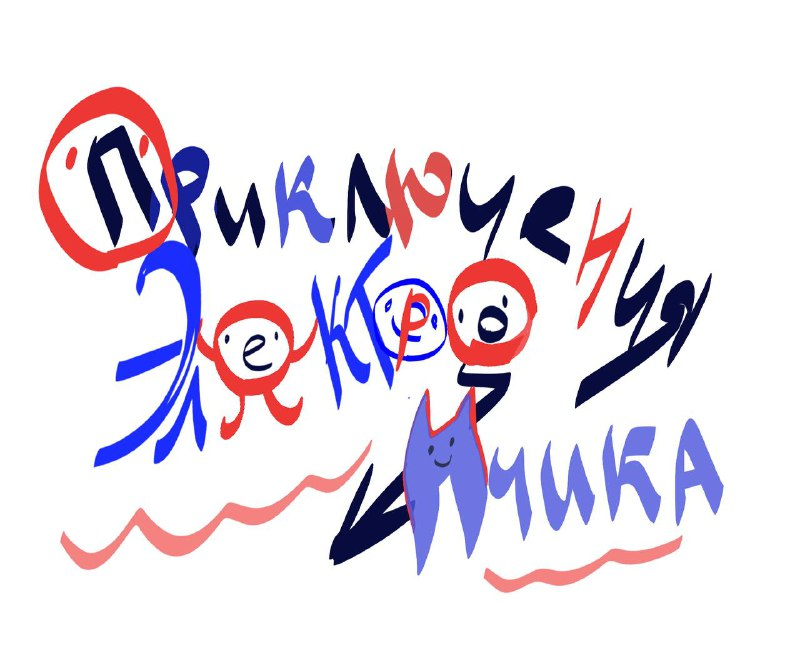 Приключения
Электро
нчика